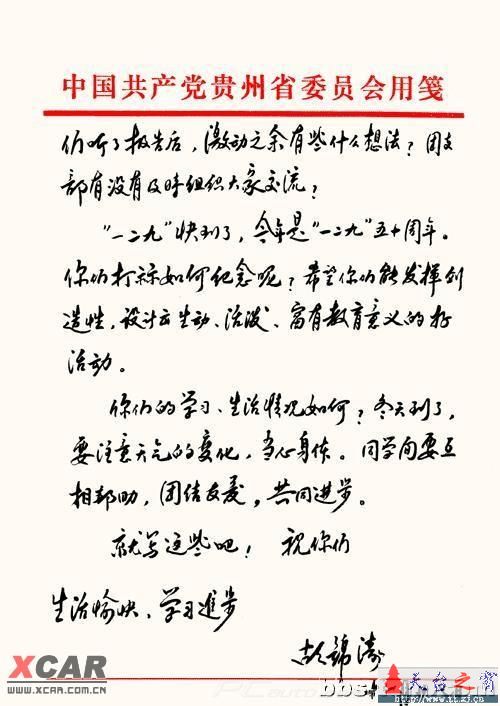 中国共产党贵州省委员会用笺
们听了报告后，激动之余有些什么想法？团支
部有没有及时组织大家交流？
“一二九”快到了，今年是“一二九”五十周年。
你们打祘如何纪念呢？希望你们能发挥创
造性，设计出生动、活泼、富有教育意义的好
活动。
你们的学习、生活情况如何？冬天到了，
要注意天气的变化，当心身体。同学间要互
相帮助，团结友爱，共同进步。
就写这些吧！ 祝你们
生活愉快、学习進步
胡锦涛
XCAR
WWW.XCAR.COM.CN
PCauto
bbs
天台之窗
www.ttzj.cn